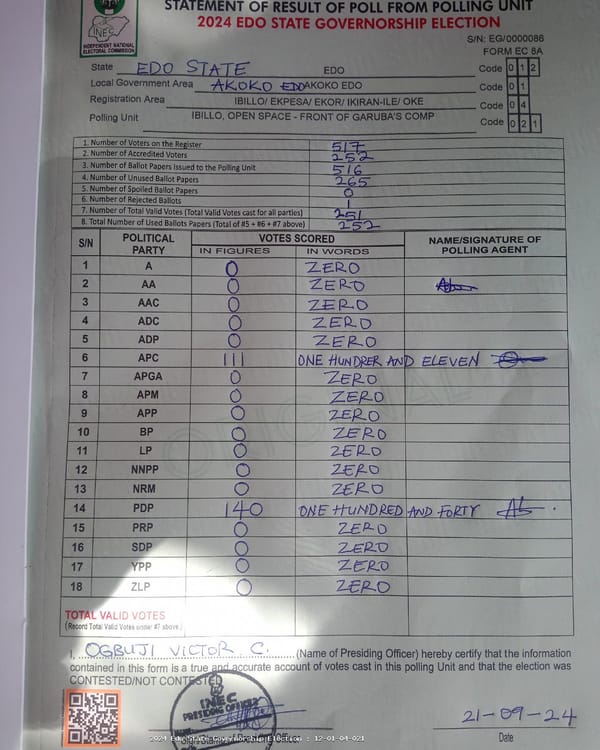 STATEMENT OF RESULT OF POLL FROM POLLING UNIT
2024 EDO STATE GOVERNORSHIP ELECTION
INEC
INDEPENDENT NATIONAL
ELECTORAL COMMISSION
S/N: EG/0000086
FORM EC 8A
State EDO STATE EDO Code 0 1 2
Local Government Area AKOKO EDO AKOKO EDO Code 0 1
Registration Area IBILLO/ EKPESA/ EKOR/ IKIRAN-ILE/ OKE Code 0 4
Polling Unit IBILLO, OPEN SPACE - FRONT OF GARUBA'S COMP Code 0 2 1
1. Number of Voters on the Register 517
2. Number of Accredited Voters 252
3. Number of Ballot Papers Issued to the Polling Unit 516
4. Number of Unused Ballot Papers 265
5. Number of Spoiled Ballot Papers 0
6. Number of Rejected Ballots 1
7. Number of Total Valid Votes (Total Valid Votes cast for all parties) 251
8. Total Number of Used Ballots Papers (Total of #5 + #6 + #7 above) 252
S/N POLITICAL PARTY VOTES SCORED NAME/SIGNATURE OF POLLING AGENT
IN FIGURES IN WORDS
1 A 0 ZERO
2 AA 0 ZERO
3 AAC 0 ZERO
4 ADC 0 ZERO
5 ADP 0 ZERO
6 APC 111 ONE HUNDRER AND ELEVEN
7 APGA 0 ZERO
8 APM 0 ZERO
9 APP 0 ZERO
10 BP 0 ZERO
11 LP 0 ZERO
12 NNPP 0 ZERO
13 NRM 0 ZERO
14 PDP 140 ONE HUNDRED AND FORTY
15 PRP 0 ZERO
16 SDP 0 ZERO
17 YPP 0 ZERO
18 ZLP 0 ZERO
ORIGINAL
TOTAL VALID VOTES
(Record Total Valid Votes under #7 above)
I, OGBUJI VICTOR C. (Name of Presiding Officer) hereby certify that the information
contained in this form is a true and accurate account of votes cast in this polling Unit and that the election was
CONTESTED/NOT CONTESTED
INEC
PRESIDING OFFICER
21-09-24
Date
2024 Edo State Governorship Election : 12-01-04-021